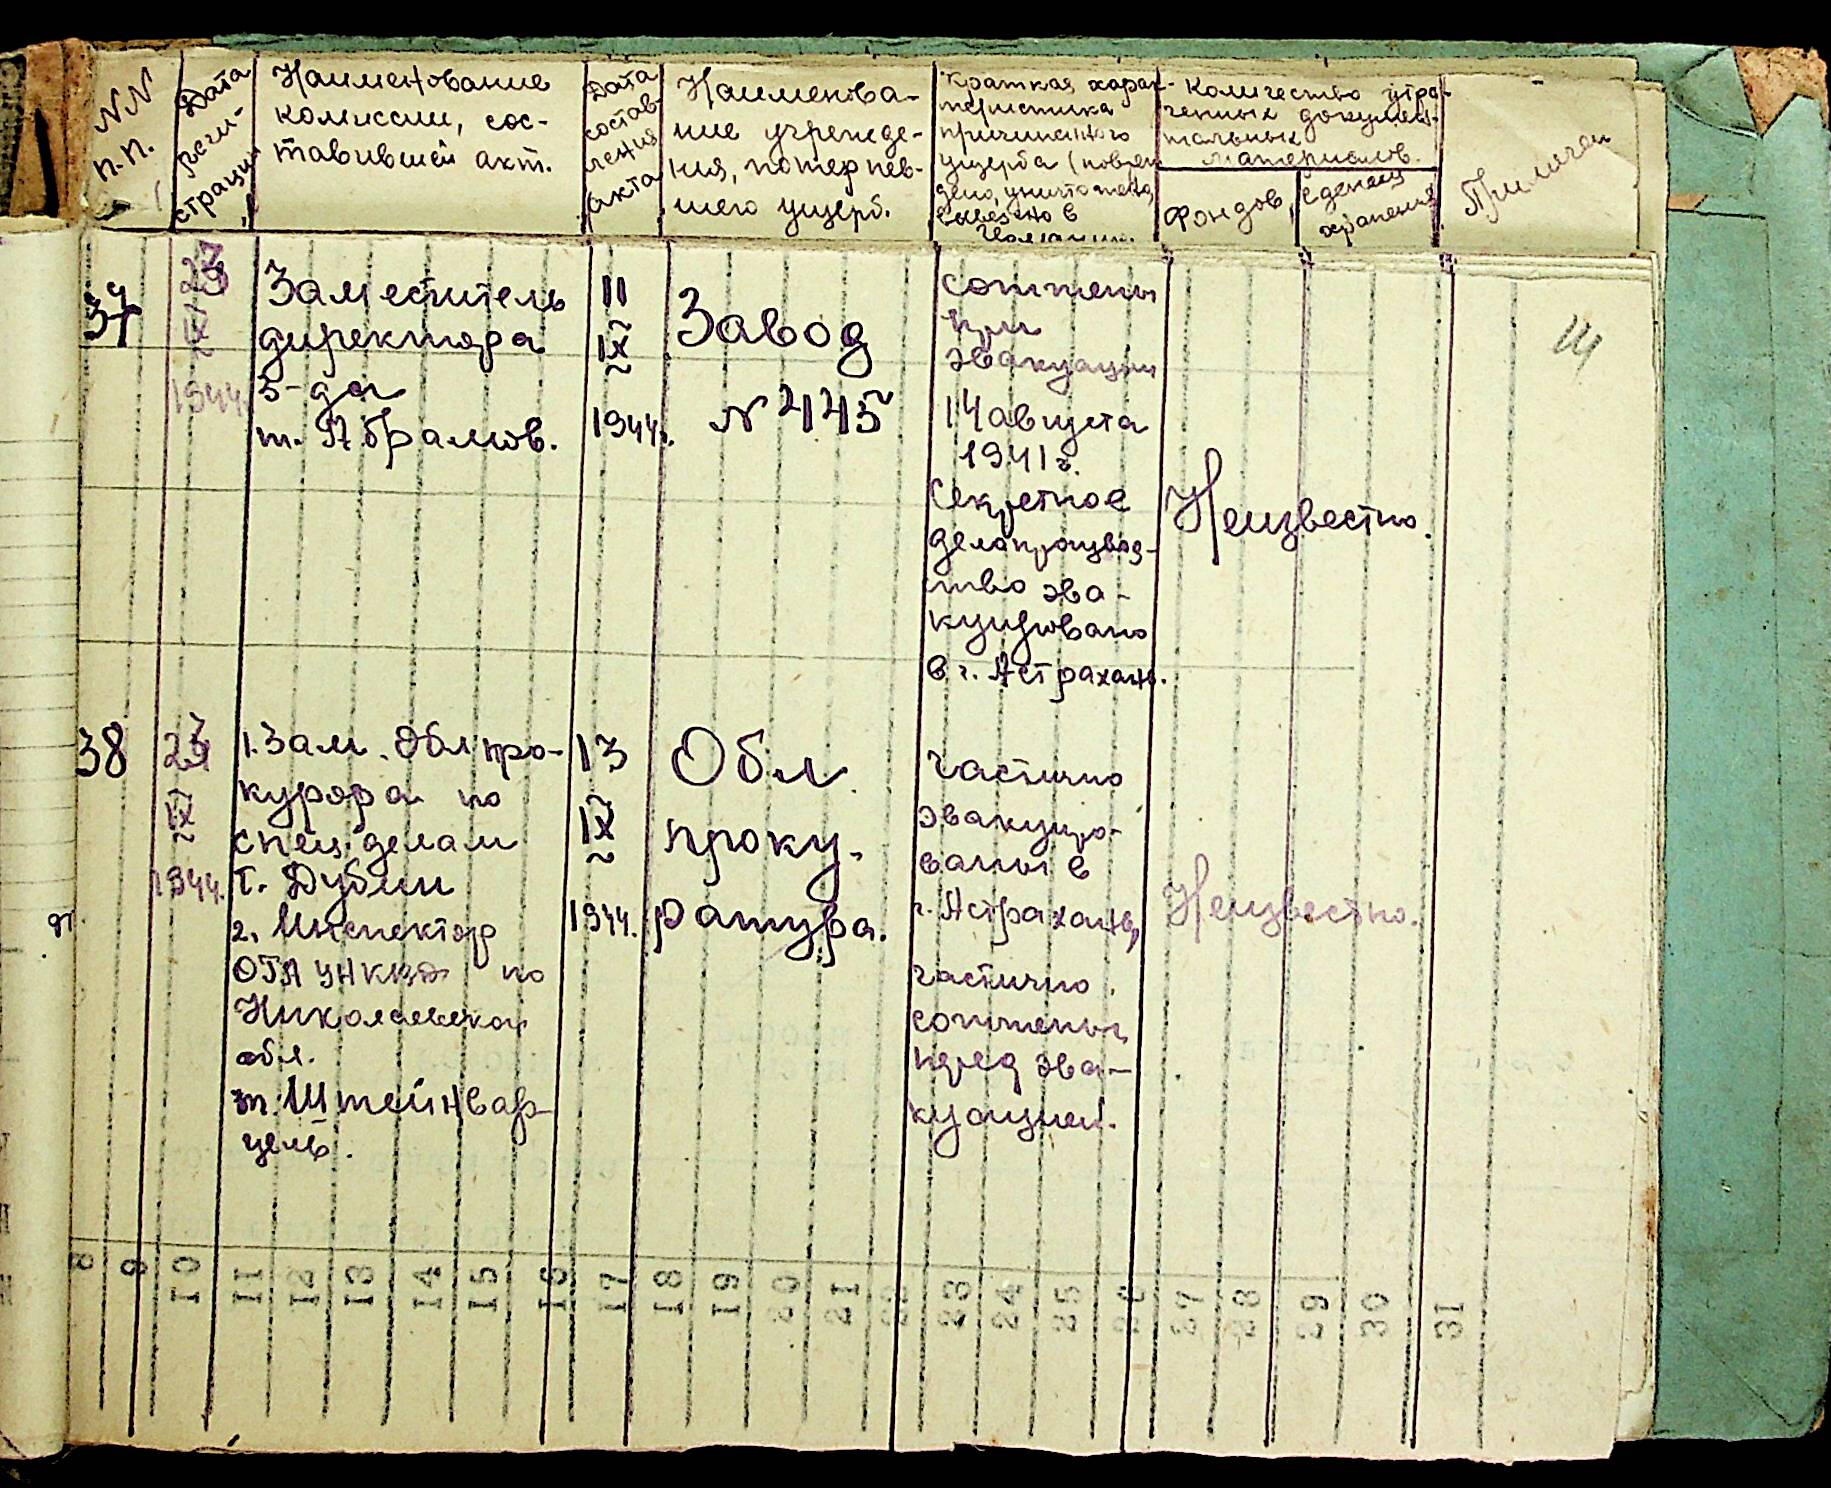 NN
п.п.
Дата
реги-
страции
Наименование
комиссии, сос-
тавившей акт.
Дата
состав-
ления
акта
Наименова-
ние учрежде-
ния, потерпев-
шего ущерб.
Краткая харак-
теристика
причиненного
ущерба (повреж
дено, уничтожено,
вывезено в
Германию.
Количество утра-
ченных докумен-
тальных
материалов.
Фондов,
Единиц
хранения
Примечан
37
23
IX
1944.
Заместитель
директора
з-да
т. Абрамов.
11
IX
1944г.
Завод
N 445
сожжены
при
эвакуации
14 августа
1941г.
Секретное
делопроизвод-
ство эва-
куировано
в г. Астрахань.
Неизвестно.
38
23
IX
1944.
1. Зам. Облпро-
курора по
спец.делам
т. Дубин
2. Инспектор
ОГА УНКВД по
Николаевской
обл.
т. Штейнвар-
цель.
13
IX
1944.
Обл.
проку-
ратура.
частично
эвакуиро-
ваны в
г. Астрахань,
частично
сожжены
перед эва-
куацией.
Неизвестно.
8 9 10 11 12 13 14 15 16 17 18 19 20 21 22 23 24 25 26 27 28 29 30 31